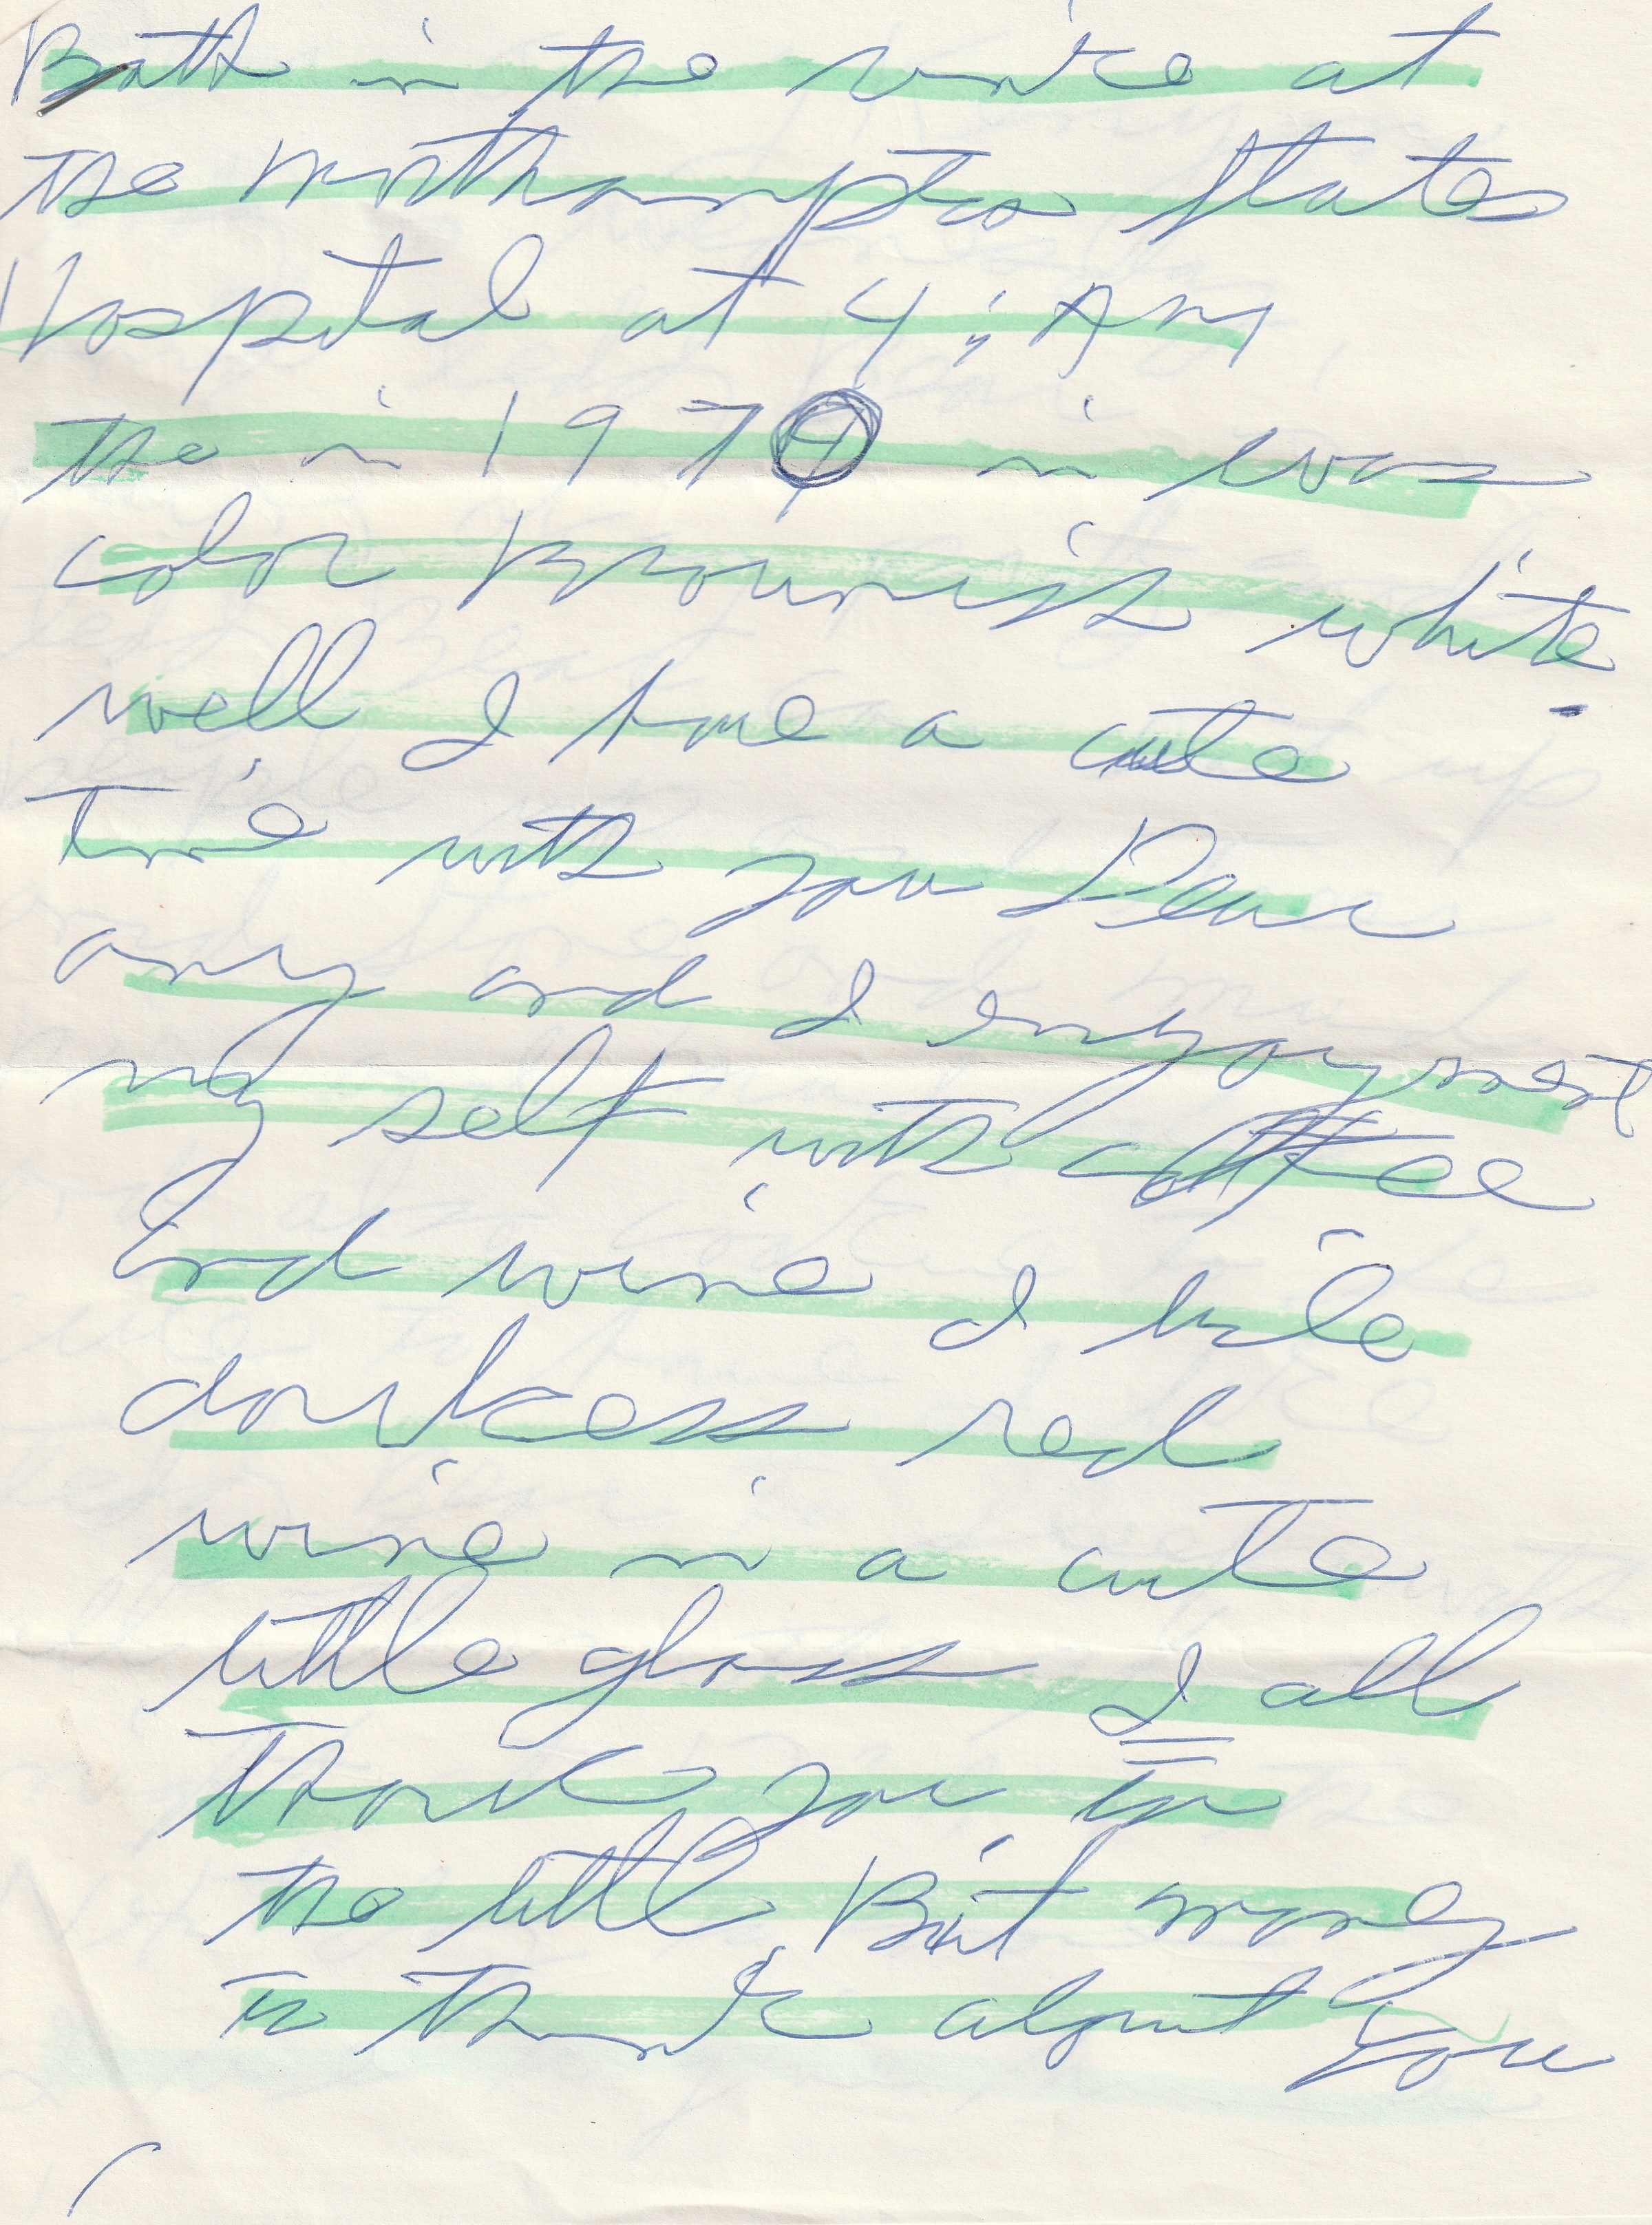 Bath in the at
the northampton States
Hospital at 4: AM
the in 1974 in was
color Brownish white
well I have a cute
Time with you Dear
amy and I enyoyment
my self with coffee
And wine I like
darkess red
wine in a cute
little glass I all
Thank you for
the little Bit money
to think about you